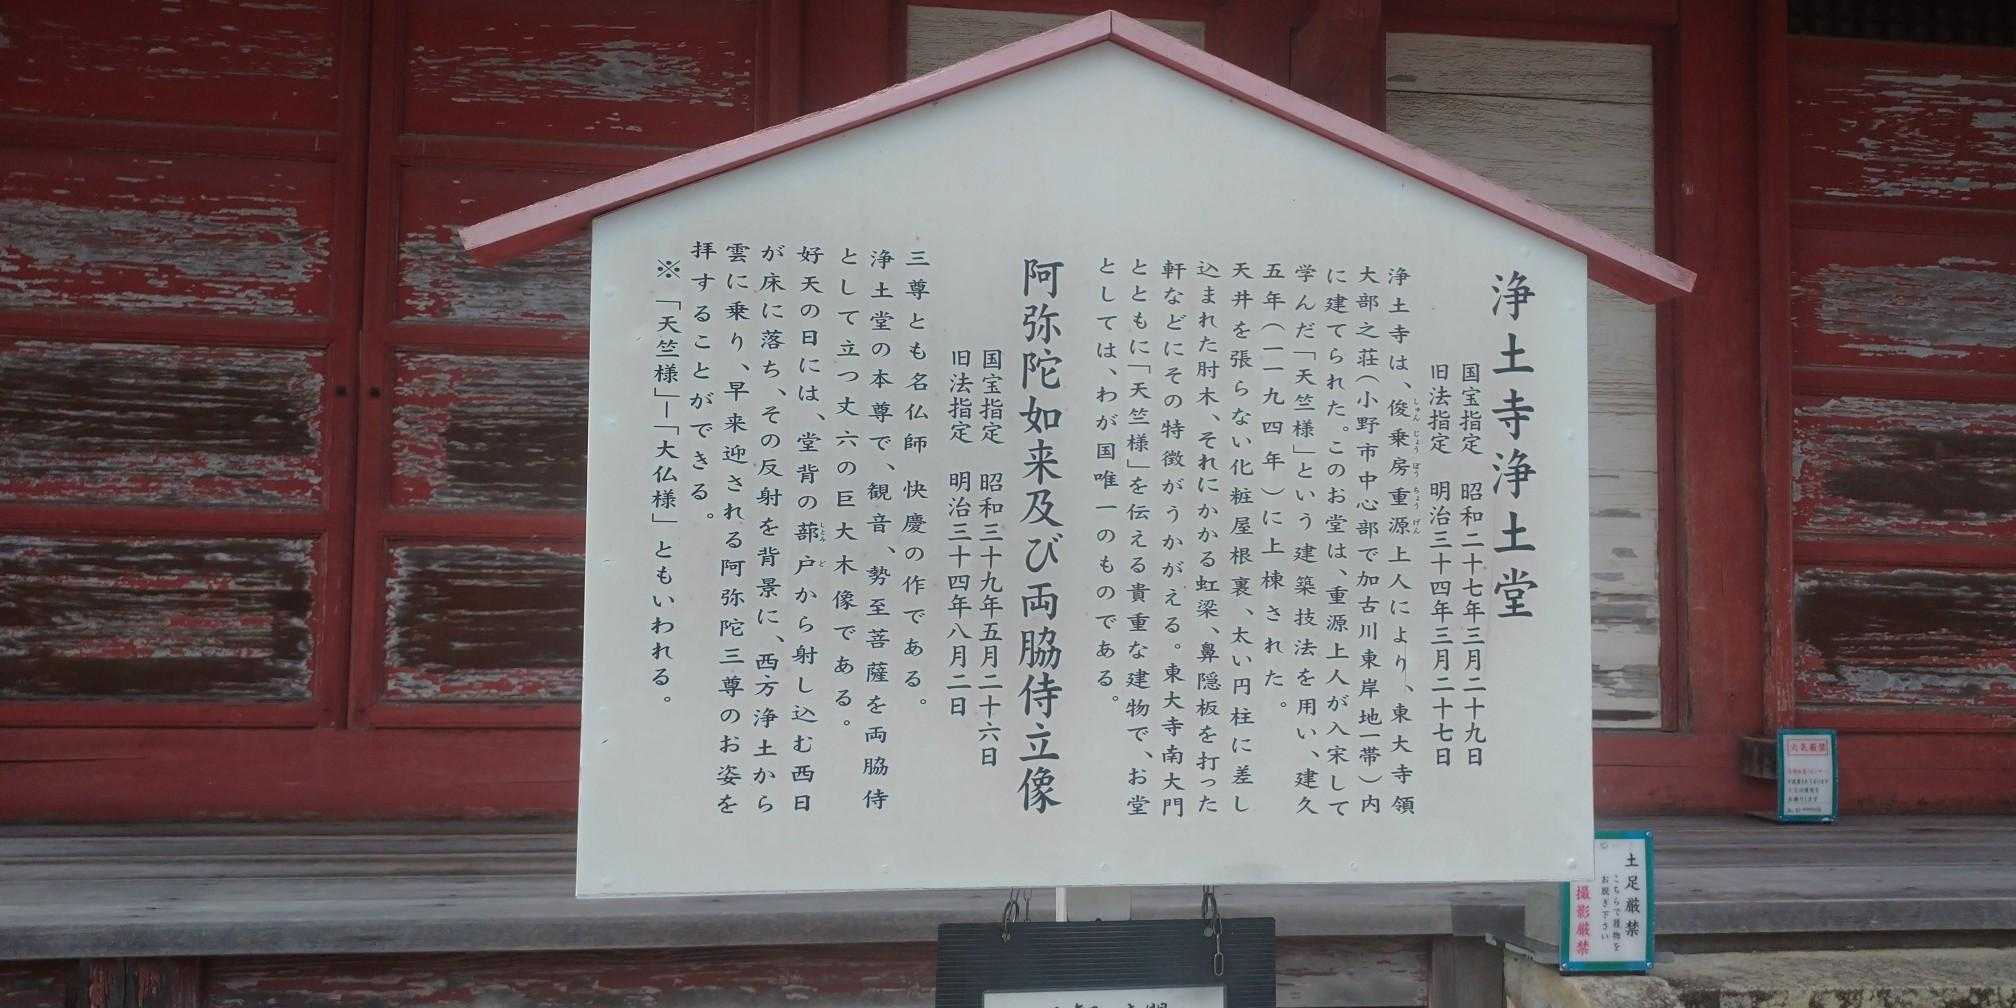 浄土寺浄土堂
国宝指定　昭和二十七年三月二十九日
旧法指定　明治三十四年三月二十七日
浄土寺は、俊乗房重源上人により、東大寺領
しゅんじょうぼうちょうげん
大部之荘（小野市中心部で加古川東岸地一帯）内
に建てられた。このお堂は、重源上人が入宋して
学んだ「天竺様」という建築技法を用い、建久
五年（一一九四年）に上棟された。
天井を張らない化粧屋根裏、太い円柱に差し
込まれた肘木、それにかかる虹梁、鼻隠板を打った
軒などにその特徴がうかがえる。東大寺南大門
とともに「天竺様」を伝える貴重な建物で、お堂
としては、わが国唯一のものである。
阿弥陀如来及び両脇侍立像
国宝指定　昭和三十九年五月二十六日
旧法指定　明治三十四年八月二日
三尊とも名仏師　快慶の作である。
浄土堂の本尊で、観音、勢至菩薩を両脇侍
として立つ丈六の巨大木像である。
好天の日には、堂背の蔀戸から射し込む西日
しとみど
が床に落ち、その反射を背景に、西方浄土から
雲に乗り、早来迎される阿弥陀三尊のお姿を
拝することができる。
※「天竺様」―「大仏様」ともいわれる。
火気厳禁
土足厳禁
こちらで履物を
お脱ぎ下さい
撮影厳禁